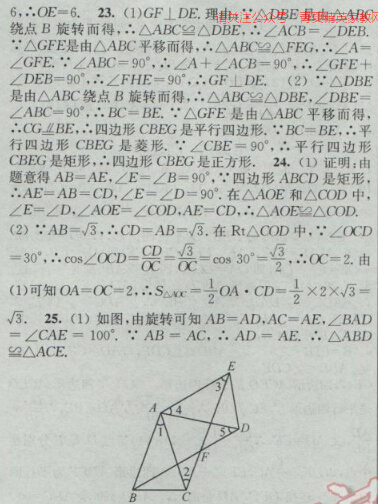 6,∴OE=6. 23. (1)GF⊥DE.理由:∵△DBE是由△ABC
绕点B旋转而得,∴△ABC≌△DBE,∴∠ACB=∠DEB.
∵△GFE是由△ABC平移而得,∴△ABC≌△FEG,∴∠A=
∠GFE. ∵∠ABC=90°,∴∠A+∠ACB=90°,∴∠GFE+
∠DEB=90°,∴∠FHE=90°,∴GF⊥DE. (2) ∵△DBE
是由△ABC绕点B旋转而得,∴△ABC≌△DBE,∠DBE=
∠ABC=90°,∴BC=BE. ∵△GFE是由△ABC平移而得,
∴CG⫽BE,∴四边形CBEG是平行四边形. ∵BC=BE,∴平
行四边形CBEG是菱形. ∵∠CBE=90°,∴平行四边形
CBEG是矩形,∴四边形CBEG是正方形. 24. (1)证明:由
题意得AB=AE,∠E=∠B=90°,∵四边形ABCD是矩形,
∴AE=AB=CD,∠E=∠D=90°.在△AOE和△COD中,
∠E=∠D,∠AOE=∠COD,AE=CD,∴△AOE≌△COD.
(2) ∵AB=√3,∴CD=AB=√3.在Rt△COD中,∵∠OCD
=30°,∴cos∠OCD=CD/OC=√3/OC=cos 30°=√3/2,∴OC=2.由
(1)可知OA=OC=2,∴S△AOC=1/2 OA·CD=1/2×2×√3=
√3. 25. (1) 如图,由旋转可知AB=AD,AC=AE,∠BAD
=∠CAE=100°. ∵AB=AC,∴AD=AE. ∴△ABD
≌△ACE.
E
3
A
4
1
5
D
F
2
B
C